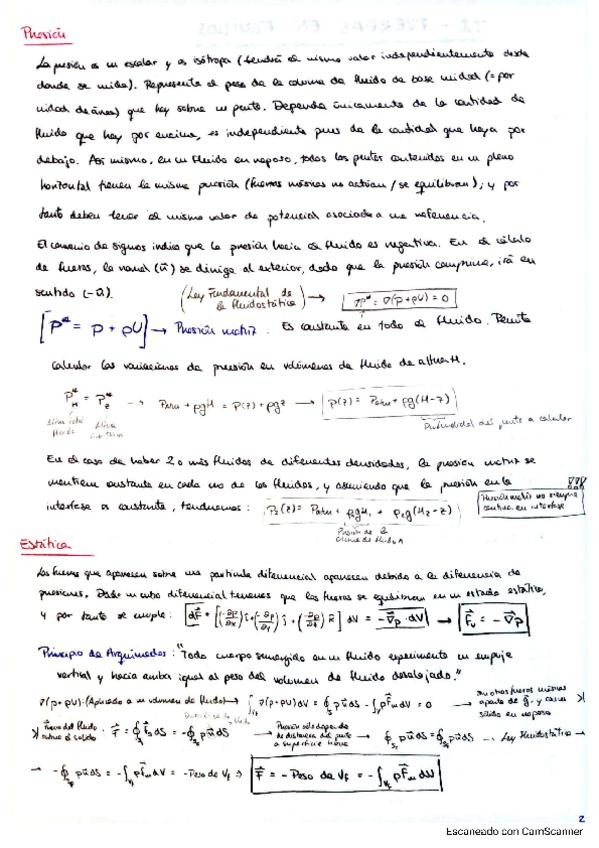 Presión
La presión es un escalar y es isótropa (tendrá el mismo valor independientemente desde
donde se mida). Representa el peso de la columna de fluido de base unidad (= por
unidad de área) que hay sobre un punto. Depende únicamente de la cantidad de
fluido que hay por encima, es independiente pues de la cantidad que haya por
debajo. Así mismo, en un fluido en reposo, todos los puntos contenidos en un plano
horizontal tienen la misma presión (fuerzas másicas no actúan / se equilibran); y por
tanto deben tener el mismo valor de potencial asociado a una referencia.
El convenio de signos indica que la presión hacia el fluido es negativa. En el cálculo
de fuerzas, la normal (n⃗) se dirige al exterior, dado que la presión comprime, irá en
sentido (-n⃗). (Ley Fundamental de la fluidostática) → ∇P* = ∇(P+ρU) = 0
[P* = P + ρU] → Presión motriz: Es constante en todo el fluido. Permite
calcular las variaciones de presión en volúmenes de fluido de altura H.
P*H = P*z → Patm + ρgH = P(z) + ρgz → P(z) = Patm + ρg(H-z)
Profundidad del punto a calcular
En el caso de haber 2 o más fluidos de diferentes densidades, la presión motriz se
mantiene constante en cada uno de los fluidos, y asumiendo que la presión en la
interfase es constante, tendremos: P₂(z) = Patm + ρ₁gH₁ + ρ₂g(H₂-z)
Presión motriz no siempre
continua en interfase
Presión de la
columna de fluido
Estática
Las fuerzas que aparecen sobre una partícula diferencial aparecen debido a la diferencia de
presiones. Dado un cubo diferencial tenemos que las fuerzas se equilibran en un estado estático,
y por tanto se cumple: dF⃗ = [(-∂p/∂x) i + (-∂p/∂y) j + (-∂p/∂z) k] dV = -∇p · dV → F⃗v = -∇p
Principio de Arquímedes: "Todo cuerpo sumergido en un fluido experimenta un empuje
vertical y hacia arriba igual al peso del volumen de fluido desalojado."
∇(P+ρU): (Aplicado a un volumen de fluido) → ∫ ∇(P+ρU) dV = ∮ p n⃗ dS - ∫ ρ F⃗m dV = 0
Sin otras fuerzas másicas
aparte de g⃗, y con el
sólido en reposo
Fuerza del fluido
sobre el sólido
Presión sólo depende
de distancia del punto
a superficie libre
Ley Fluidostática →
→ -∮ p n⃗ dS = -∫ ρ F⃗m dV = -Peso de Vf ⇒ F⃗ = -Peso de Vf = -∫ ρ F⃗m dV
2
Escaneado con CamScanner